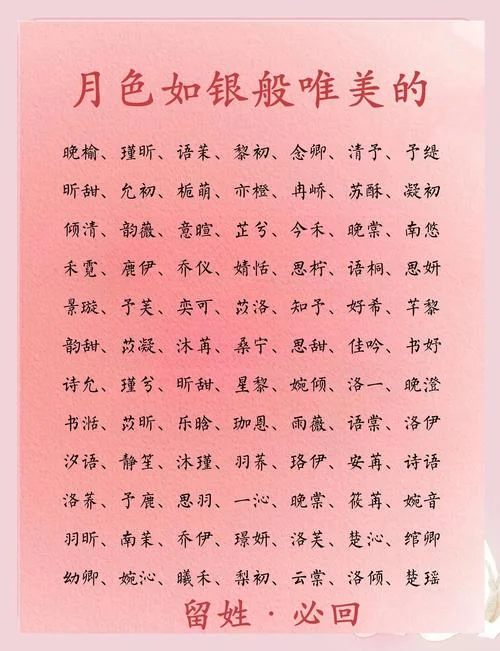 月色如银般唯美的
晚榆、瑾昕、语茉、黎初、念卿、清予、予缇
昕甜、允初、栀萌、亦橙、冉峤、苏酥、凝初
倾清、韵薇、意暄、芷兮、今禾、晚棠、南悠
禾霓、鹿伊、乔仪、婧恬、思柠、语桐、思妍
景璇、予芙、奕可、莐洛、知予、好希、芊黎
韵甜、莐凝、沐苒、桑宁、思甜、佳吟、书妤
诗允、瑾兮、昕甜、星黎、婉倾、洛一、晚澄
书湉、莐昕、乐晗、珈恩、雨薇、语棠、洛伊
汐语、静笙、沐瑾、羽荞、珞伊、安苒、诗语
洛荞、予鹿、思羽、一沁、晚棠、筱苒、婉音
羽昕、南茉、乔伊、璟妍、洛芙、楚沁、绾卿
幼卿、婉沁、曦禾、梨初、云棠、洛倾、楚瑶
留姓·必回